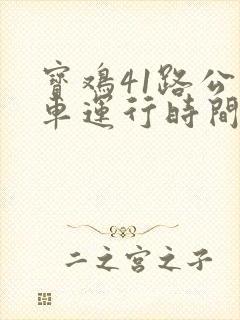 寶鸡41路公
車運行時間
二之宫之子